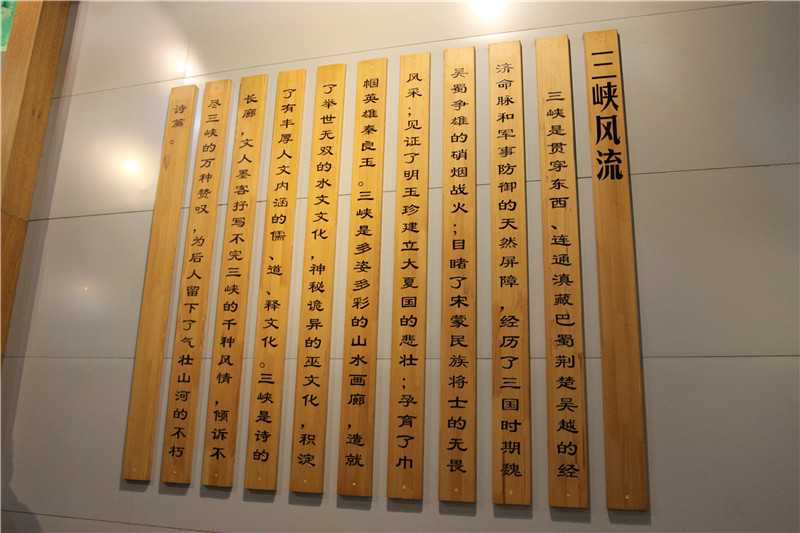 三峡风流
三峡是贯穿东西、连通滇藏巴蜀荆楚吴越的经
济命脉和军事防御的天然屏障,经历了三国时期魏
吴蜀争雄的硝烟战火;目睹了宋蒙民族将士的无畏
风采;见证了明玉珍建立大夏国的悲壮;孕育了巾
帼英雄秦良玉。三峡是多姿多彩的山水画廊,造就
了举世无双的水文文化,神秘诡异的巫文化,积淀
了有丰厚人文内涵的儒、道、释文化。三峡是诗的
长廊,文人墨客抒写不完三峡的千种风情,倾诉不
尽三峡的万种赞叹,为后人留下了气壮山河的不朽
诗篇。